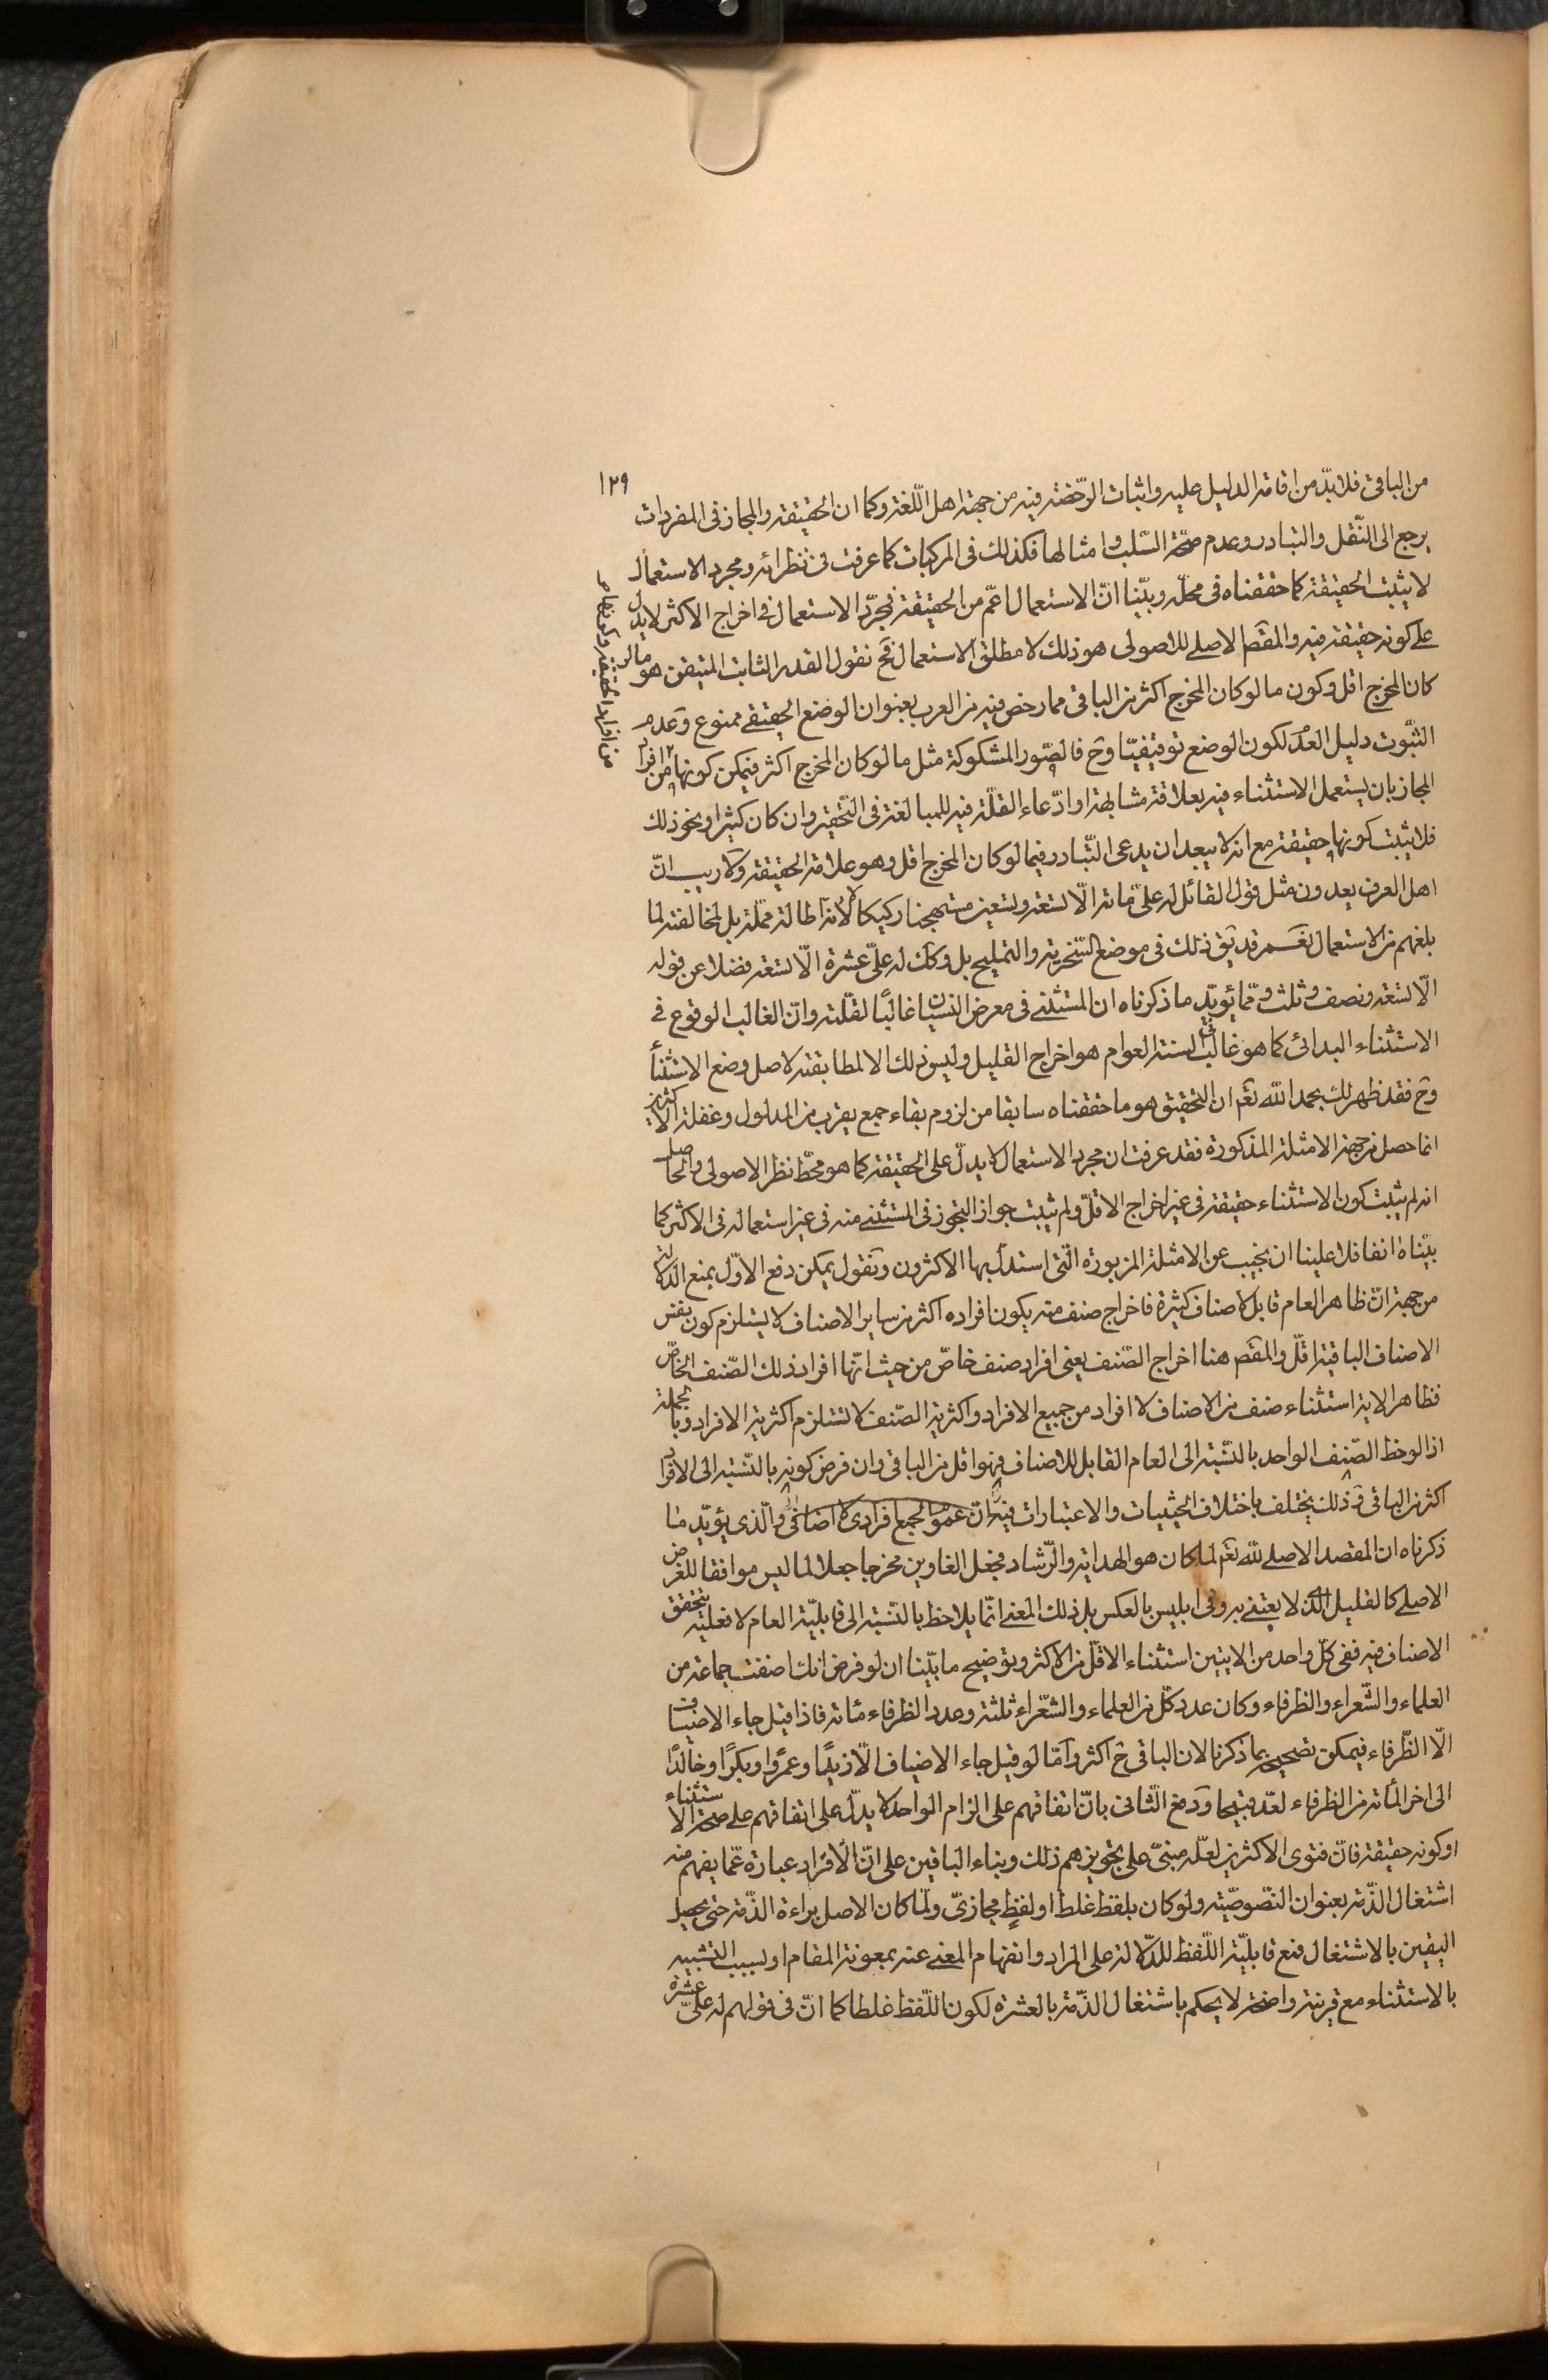 ١٢٩
من الباقى فلابدّ من اقامة الدليل عليه واثبات الرّخصة فيه من جهة اهل اللّغة وكما ان الحقيقة والمجاز فى المفردات
يرجع الى النّقل والتبادر وعدم صحّة السّلب وامثالها فكذلك فى المركبات كما عرفت فى نظرائه ومجرد الاستعمال
لا يثبت الحقيقة كما حققناه فى محلّه وبيّنا انّ الاستعمال اعمّ من الحقيقة فمجرّد الاستعمال فى اخراج الاكثر لايدل
على كونه حقيقة فيه والمقصَ الاصلى للاصولى هو ذلك لا مطلق الاستعمال فح نقول القدر الثابت المتيقن هو مالو
كان المخرج اقل وكون ما لو كان المخرج اكثر من الباقى مما رخص فيه من العرب بعنوان الوضع الحقيقى ممنوع وعدم
الثبّوت دليل العدَم لكون الوضع توقيفيّا وح فالصّور المشكوكة مثل ما لو كان المخرج اكثر فيمكن كونها من افراد
من افراد الحقيقة وكونها
المجاز بان يستعمل الاستثناء فيه بعلاقة مشابهة او ادّعاء القلّة فيه للمبالغة فى التّحقير وان كان كثيرا ونحو ذلك
فلا يثبت كونها حقيقة مع انه لا يبعد ان يدعى التّبادر فيما لو كان المخرج اقل وهو علامة الحقيقة ولا ريب انّ
اهل العرف يعدون مثل قول القائل له علىّ مائة الّا تسعة وتسعين مستهجنا ركيكا لا لانه اطالة مملّة بل لمخالفته لما
بلغهم من الاستعمال نعم قد يقَ ذلك فى موضع السّخرية والتمليح بل وكَك له علىّ عشرة الّا تسعة فضلا عن قوله
الّا تسعة ونصف وثلث وممّا يؤيّد ما ذكرناه ان المستثنى فى معرض النّسيان غالبًا لقلّته وانّ الغالب الوقوع فى
الاستثناء البدائى كما هو غالب فى السنة العوام هو اخراج القليل وليس ذلك الا لمطابقته لاصل وضع الاستثنأ
وح فقد ظهر لك بحمد الله تعَم ان التحقيق هو ما حققناه سابقا من لزوم بقاء جمع يقرب من المدلول وغفلة الاكثرين
انما حصل من جهة الامثلة المذكورة فقد عرفت ان مجرد الاستعمال لا يدلّ على الحقيقة كما هو محطّ نظر الاصولى والحاصل
انه لم يثبت كون الاستثناء حقيقة فى غير اخراج الاقلّ ولم يثبت جواز التجوز فى المستثنى منه فى غير استعماله فى الاكثر كما
بيّناه انفا فلا علينا ان نجيب عن الامثلة المزبورة الّتى استدلّ بها الاكثرون ونقول يمكن دفع الاوّل بمنع الدلالة
من جهة انّ ظاهر العام قابل لاصناف كثيرة فاخراج صنف منه يكون افراده اكثر من ساير الاصناف لا يستلزم كون نفس
الاصناف الباقية اقلّ والمقصَ هنا اخراج الصّنف يعنى افراد صنف خاصّ من حيث انّها افراد ذلك الصّنف الخاصّ
فظاهر الاية استثناء صنف من الاصناف لا افراد من جميع الافراد واكثرية الصّنف لا تستلزم اكثرية الافراد وبالجملة
اذا لوحظ الصّنف الواحد بالنّسبة الى العام القابل للاصناف فهو اقل من الباقى وان فرض كونه بالنّسبة الى الافراد
اكثر من الباقى وذلك يختلف باختلاف الحيثيات والاعتبارات فيه انّ عموم الجمع افرادى لا اضافى والّذى يؤيّد ما
ذكرناه ان المقصد الاصلى لله تعَم لما كان هو الهداية والرّشاد فجعل الغاوين مخرجا جعلا لما ليس موافقا للغرض
الاصلى كالقليل الّذى لا يعتنى به وفى ابليس بالعكس بل ذلك المعنى انّما يلاحظ بالنّسبة الى قابليّة العام لا فعلية تحقق
الاصناف فيه ففى كلّ واحد من الايتين استثناء الاقلّ من الاكثر وتوضيح ما بيّنا ان لو فرض انك اضفت جماعة من
العلماء والشّعراء والظرفاء وكان عدد كلّ من العلماء والشّعراء ثلثة وعدد الظرفاء مائة فاذا قيل جاء الاضياف
الّا الظّرفاء فيمكن تصحيحه بما ذكرنا لان الباقى ح اكثر وامّا لو قيل جاء الاضياف الّا زيدًا وعمرًوا وبكرًا وخالدًا
الى اخر المأئة من الظرفاء لعدّ قبيحا ودفع الثّانى بانّ اتفاقهم على الزام الواحد لا يدلّ على اتفاقهم على صحة الاستثناء
او كونه حقيقة فانّ فتوى الاكثرين لعلّه مبنىّ على تجويزهم ذلك وبناء الباقين على انّ الأقرار عبارة عمّا يفهم منه
اشتغال الذّمة بعنوان النّصوصيّة ولو كان بلفظ غلط او لفظٍ مجازىّ ولمّا كان الاصل براءة الذّمة حتى يحصل
اليقين بالاشتغال فمع قابليّة اللّفظ للدّلالة على المراد وانفهام المعنى عنه بمعونة المقام او لسبب التشبيه
بالاستثناء مع قرينة واضحة لا يحكم باشتغال الذّمة بالعشرة لكون اللّفظ غلطا كما انّ فى قولهم له علىّ عشرة